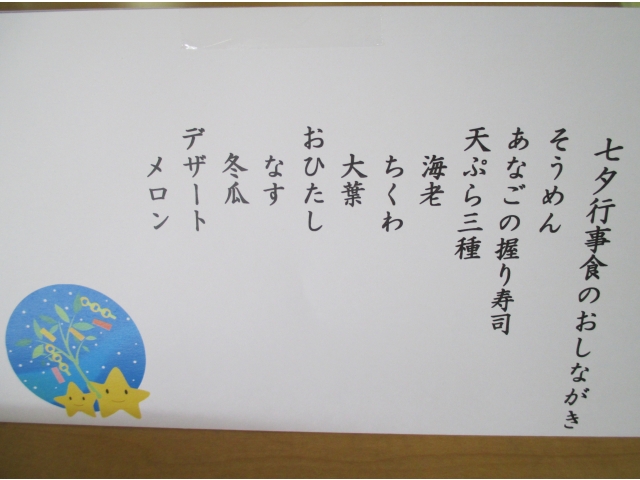 七夕行事食のおしながき
そうめん
あなごの握り寿司
天ぷら三種
海老
ちくわ
大葉
おひたし
なす
冬瓜
デザート
メロン